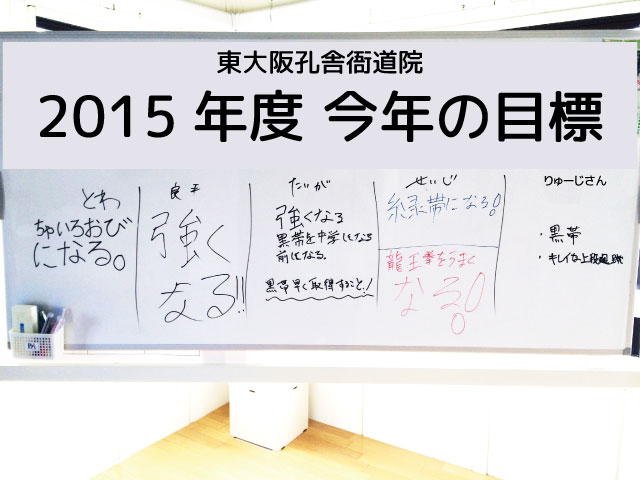 東大阪孔舎衙道院
2015 年度 今年の目標
とわ
ちゃいろおび
になる。
良平
強く
なる!!
たいが
強くなる
黒帯を中学になる
前になる。
黒帯早く取得すること!
せいじ
緑帯になる!
龍王拳をうまく
なる!
りゅーじさん
・黒帯
・キレイな上段廻し蹴